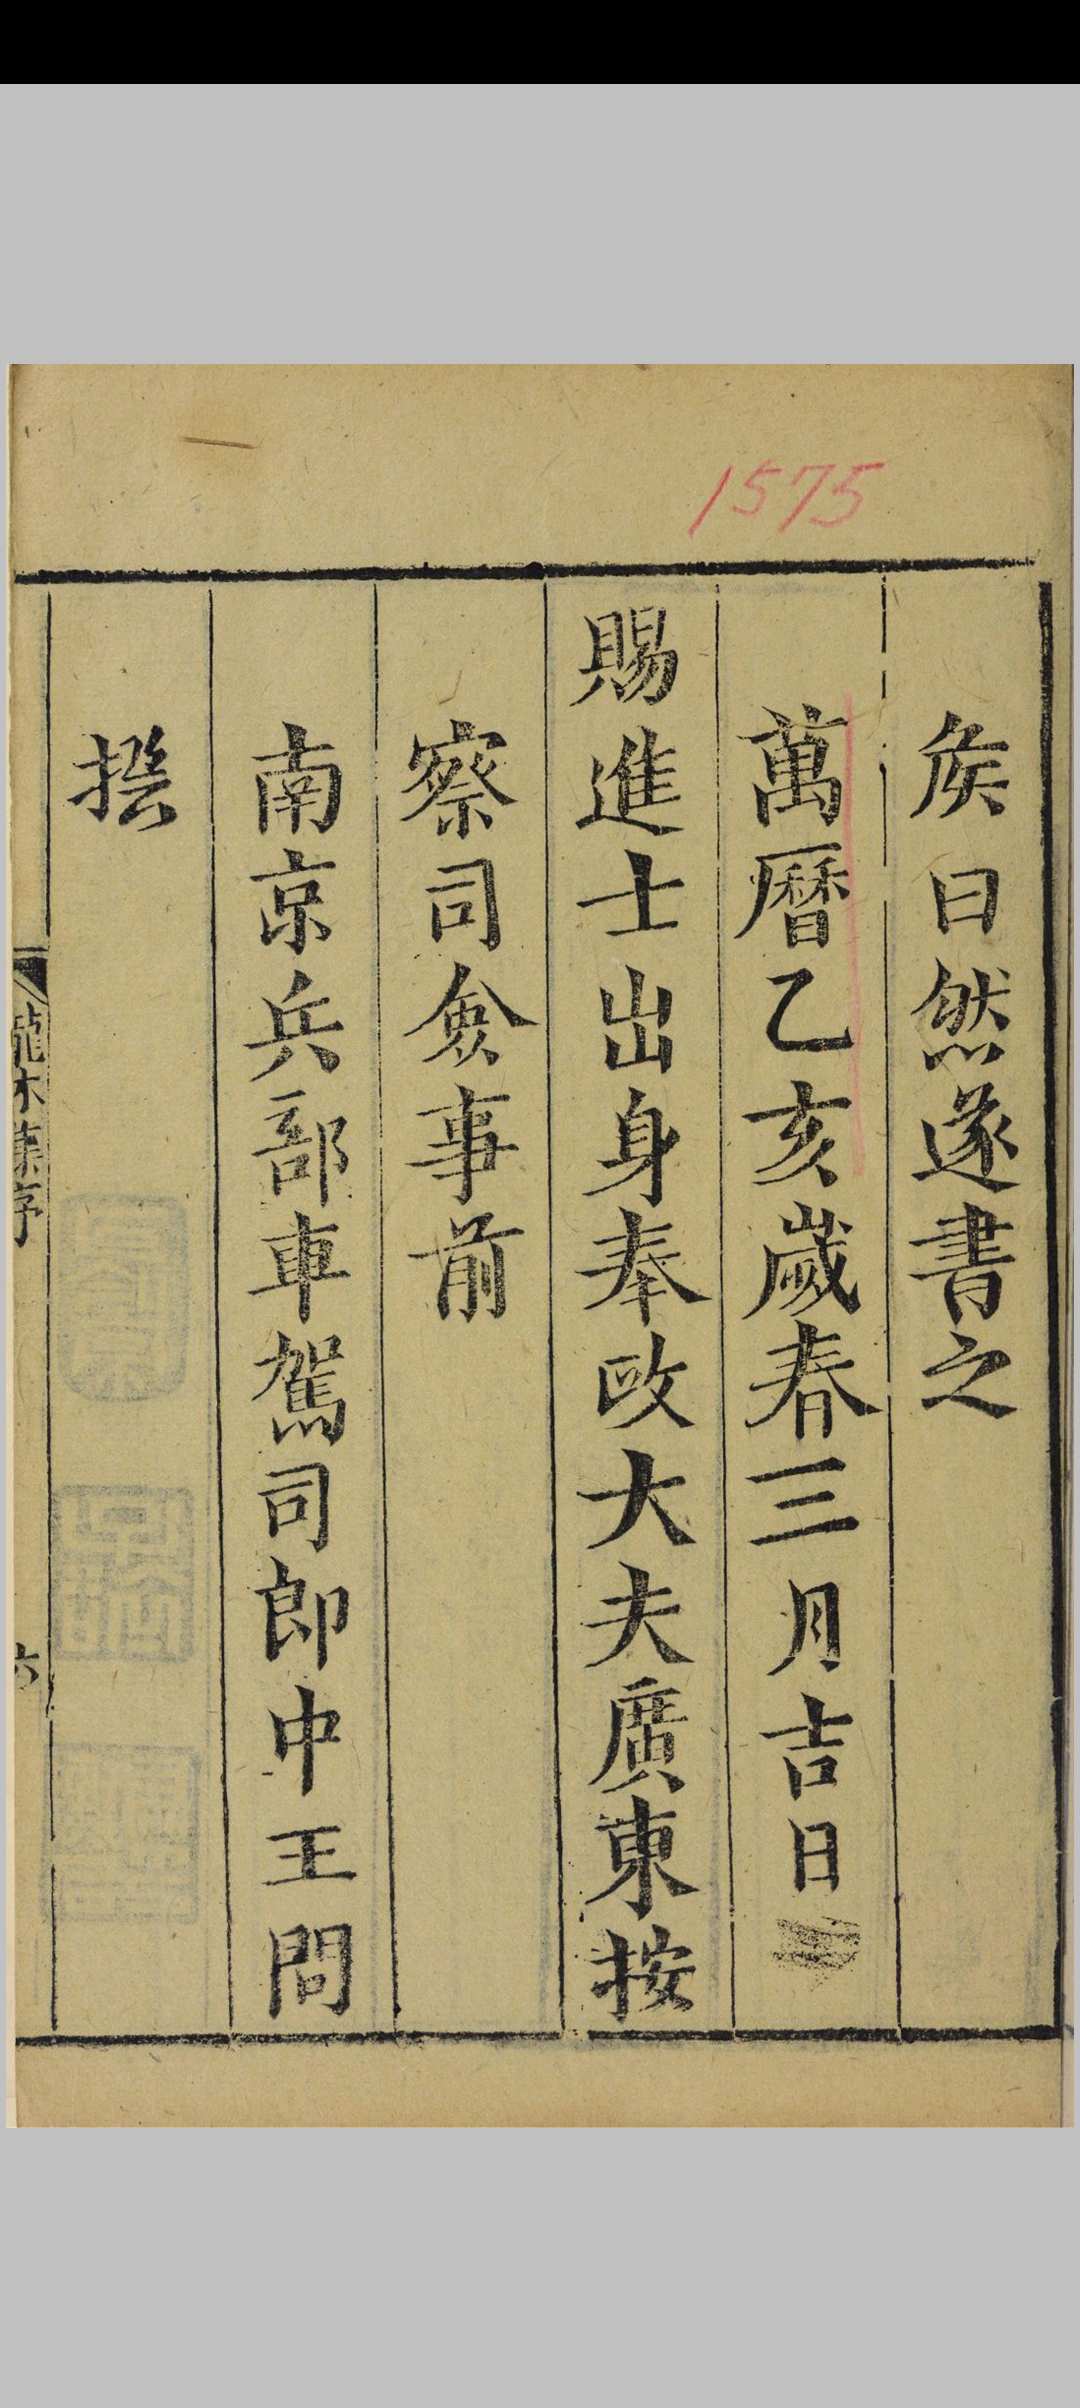 1575
矦曰然遂書之
萬曆乙亥歲春三月吉日
賜進士出身奉政大夫廣東按
察司僉事前
南京兵部車駕司郎中王問
撰
集序
六